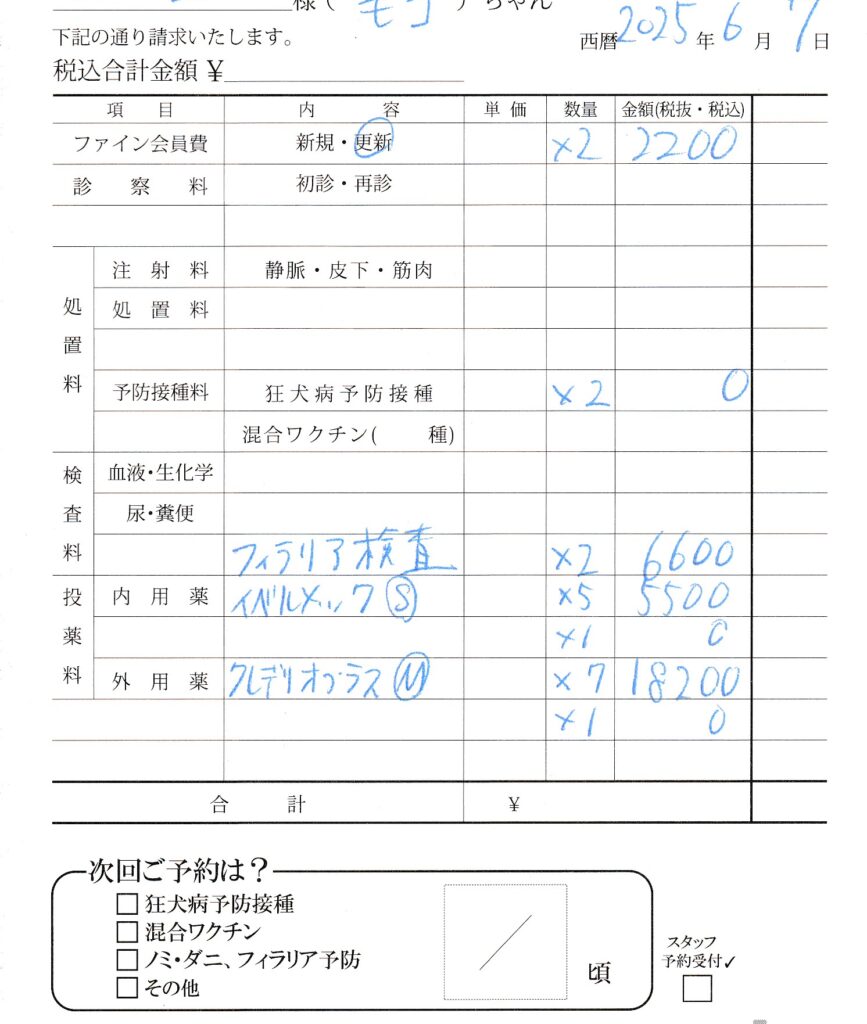 様( モコ )ちゃん
下記の通り請求いたします。
西暦2025年6月7日
税込合計金額 ¥
項 目 内 容 単価 数量 金額(税抜・税込)
ファイン会員費 新規・更新 ×2 2200
診察料 初診・再診
処置料
注射料 静脈・皮下・筋肉
処置料
予防接種料 狂犬病予防接種 ×2 0
混合ワクチン( 種)
検査料
血液・生化学
尿・糞便
フィラリア検査 ×2 6600
投薬料
内用薬 イベルメック Ⓢ ×5 5500
×1 0
外用薬 クレデリオプラス Ⓜ ×7 18200
×1 0
合 計 ¥
次回ご予約は?
□ 狂犬病予防接種
□ 混合ワクチン
□ ノミ・ダニ、フィラリア予防
□ その他
/
頃
スタッフ
予約受付✓
□